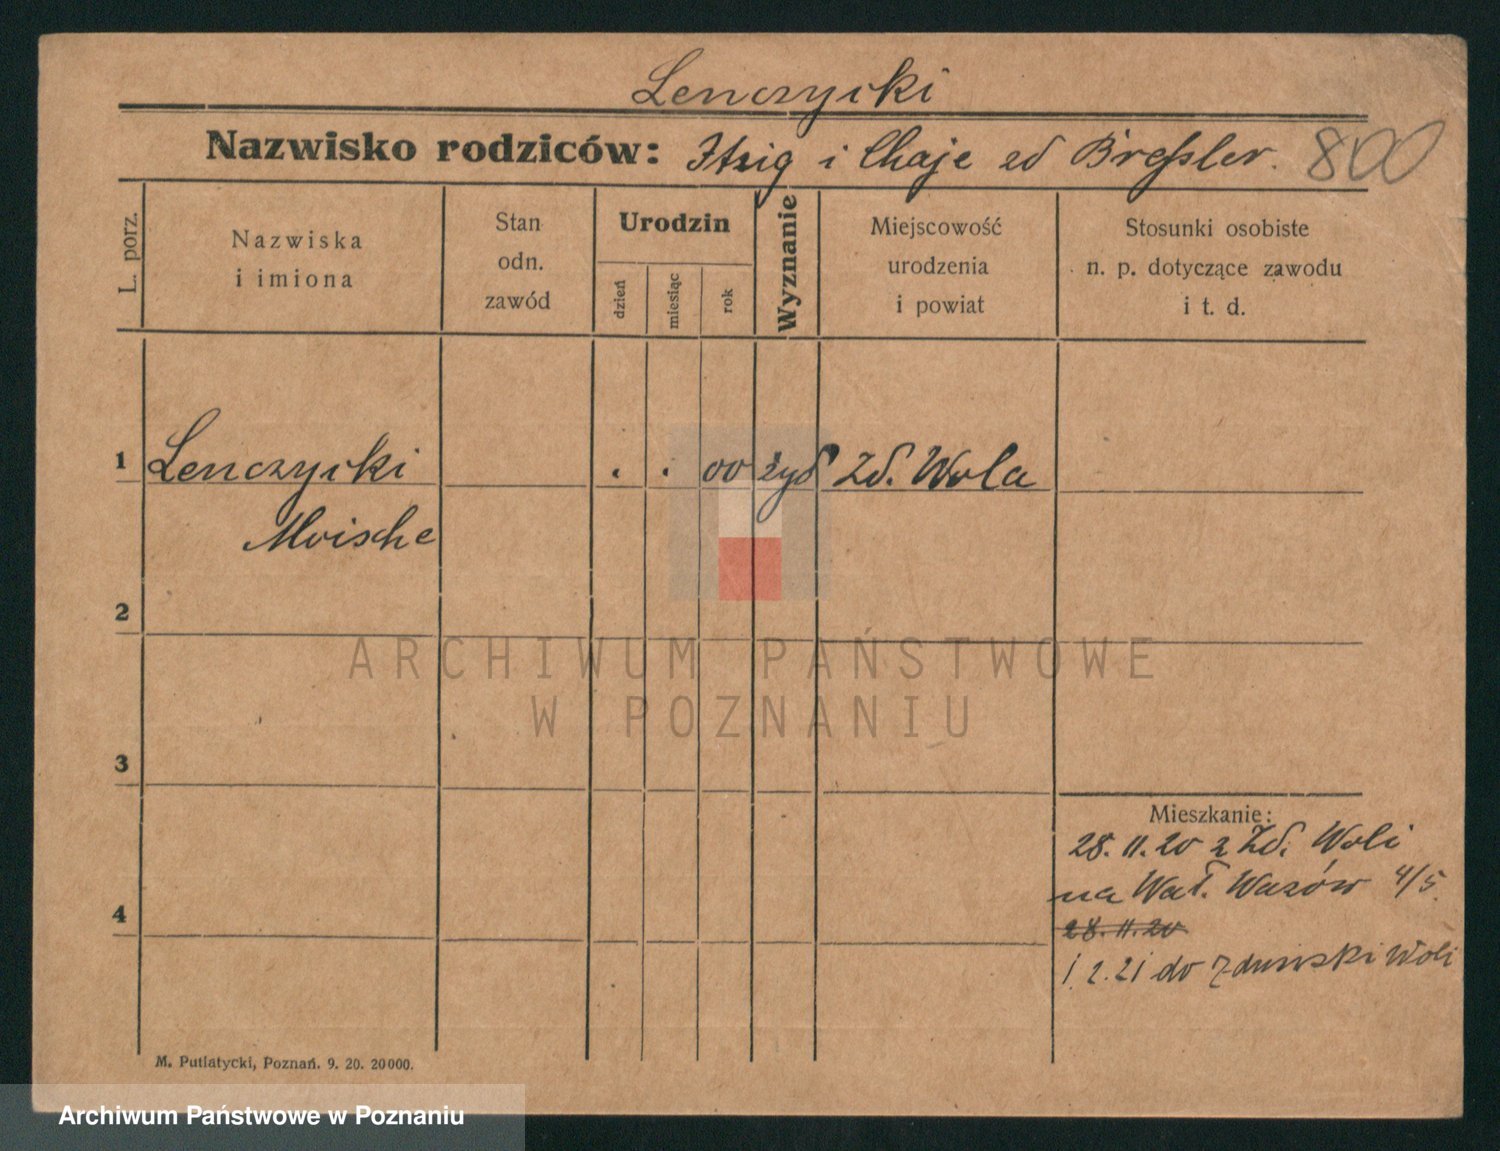 Lenczycki
Nazwisko rodziców: Itzig i Chaje zd Bressler. 800
L. porz.
Nazwiska
i imiona
Stan
odn.
zawód
Urodzin
dzień
miesiąc
rok
Wyznanie
Miejscowość
urodzenia
i powiat
Stosunki osobiste
n. p. dotyczące zawodu
i t. d.
1 Lenczycki . . 00 żyd Zd. Wola
Moische
2
ARCHIWUM PAŃSTWOWE
W POZNANIU
3
Mieszkanie:
28. 11. 20 z Zd. Woli
na Wał. Wazów 4/5.
28. 11. 20
4
1. 2. 21 do Zduński Woli
M. Putiatycki, Poznań. 9. 20. 20000.
Archiwum Państwowe w Poznaniu